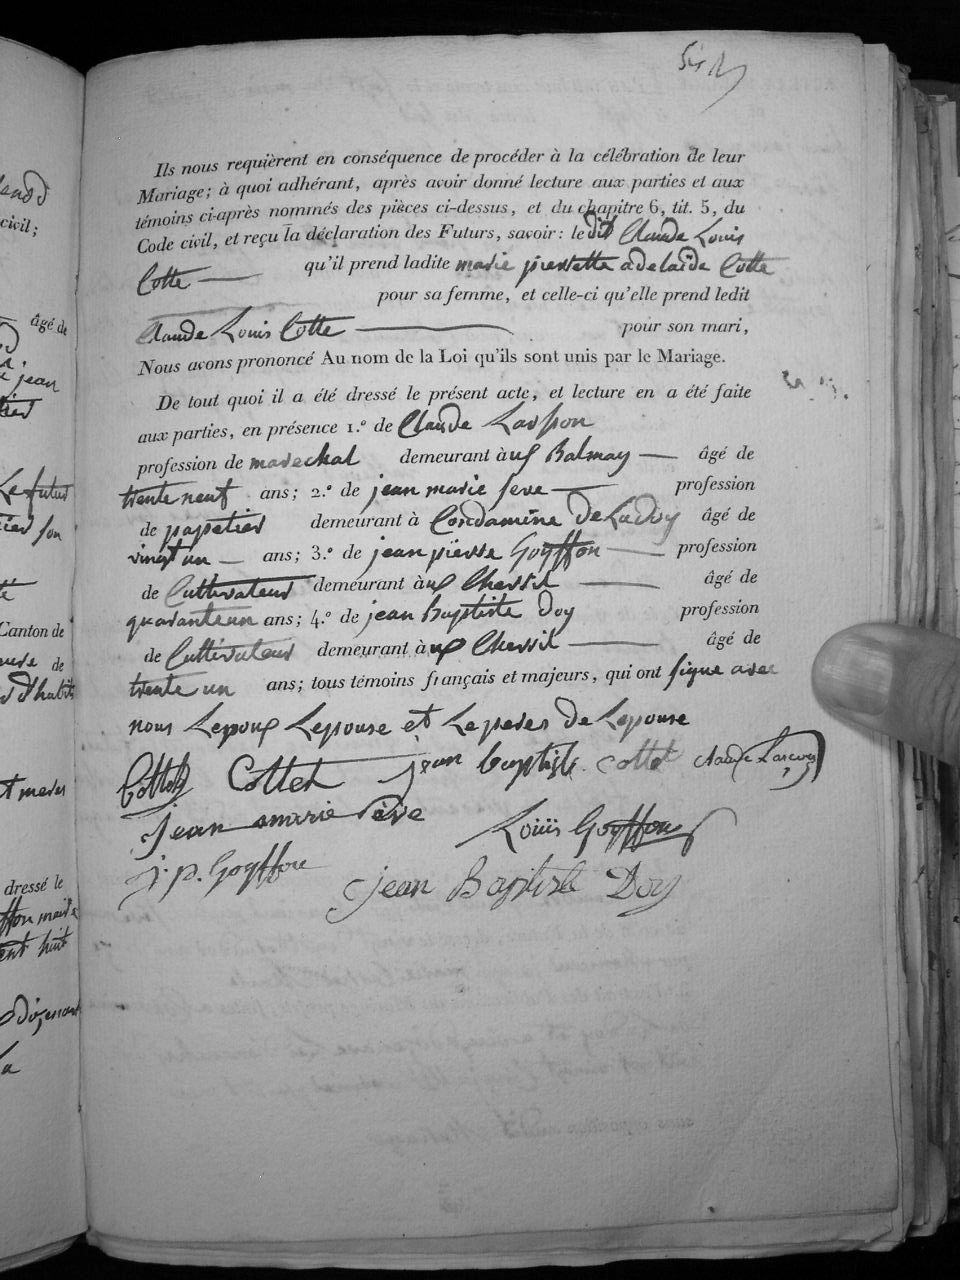 Ils nous requièrent en conséquence de procéder à la célébration de leur
Mariage; à quoi adhérant, après avoir donné lecture aux parties et aux
témoins ci-après nommés des pièces ci-dessus, et du chapitre 6, tit. 5, du
Code civil, et reçu la déclaration des Futurs, savoir: le dit Claude Louis
Cotte — qu'il prend ladite marie pierrette adelaide Cotte
pour sa femme, et celle-ci qu'elle prend ledit
Claude Louis Cotte — pour son mari,
Nous avons prononcé Au nom de la Loi qu'ils sont unis par le Mariage.
De tout quoi il a été dressé le présent acte, et lecture en a été faite
aux parties, en présence 1.º de Claude
profession de marechal demeurant à Balmay — âgé de
trente neuf ans; 2.º de jean marie seve — profession
de papetier demeurant à Condamine De Ladoy âgé de
vingt un — ans; 3.º de jean pierre Goyffon — profession
de Cultivateur demeurant à Chessit — âgé de
quarante un ans; 4.º de jean Baptiste Doy profession
de Cultivateur demeurant à Chessit — âgé de
trente un ans; tous témoins français et majeurs, qui ont signe avec
nous Lepoux Lepouse et Le peres De Lepouse
Cottet Cottet jean baptiste cottet claude
jean marie sève Loüis Goyffon
j. p. Goyffon
jean Baptiste Doy
civil;
âgé de
jean
Le futur
son
Canton de
de
d'habits
dressé le